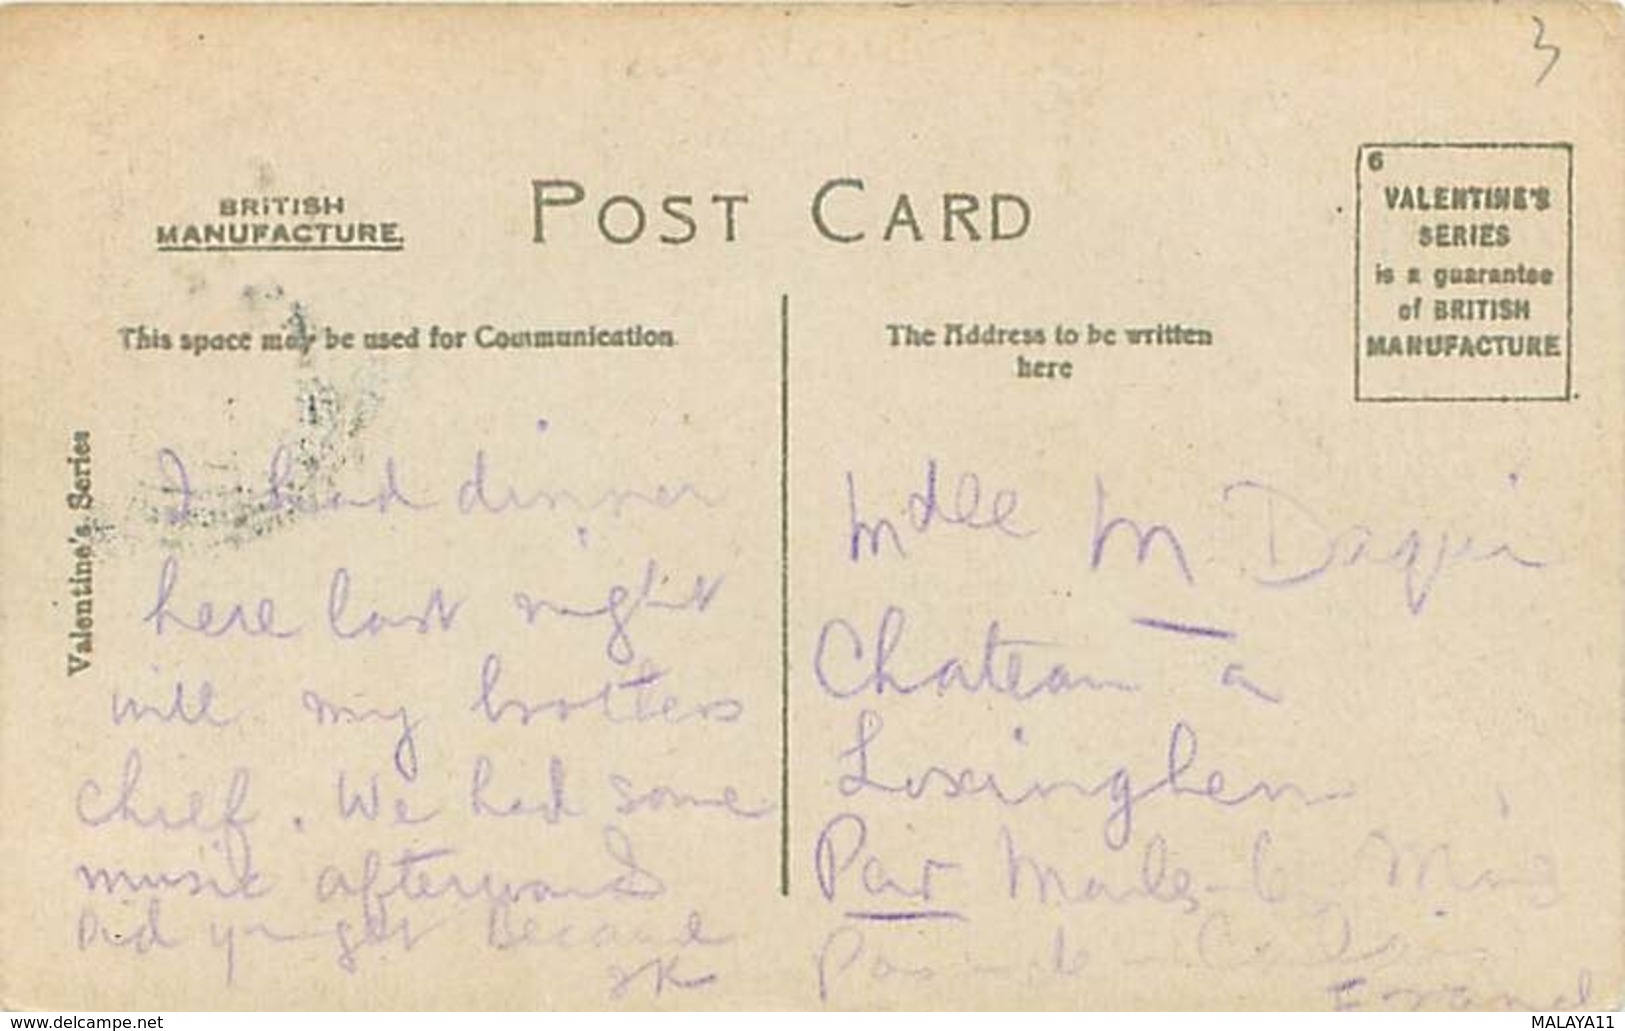 3
BRITISH
MANUFACTURE.
POST CARD
6
VALENTINE'S
SERIES
is a guarantee
of BRITISH
MANUFACTURE
This space may be used for Communication.
The Address to be written
here
Valentine's Series
I had dinner
here last night
will my brothers
chief. We had some
music afterward
Did you get
JK
Mdlle M
Chateau a
Loxinghen
Par Marles-les-Mines
Pas-de-Calais
France
MALAYA11